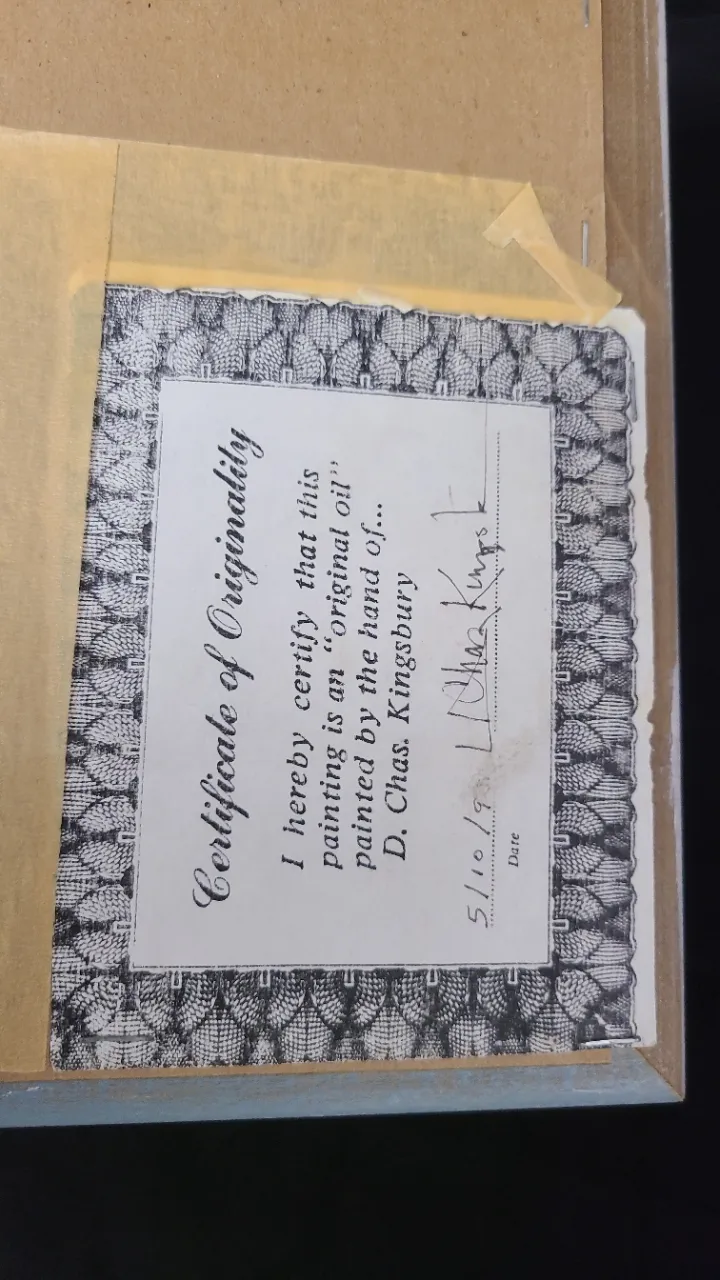 Certificate of Originality
I hereby certify that this
painting is an "original oil"
painted by the hand of...
D. Chas. Kingsbury
5/10/9
Date